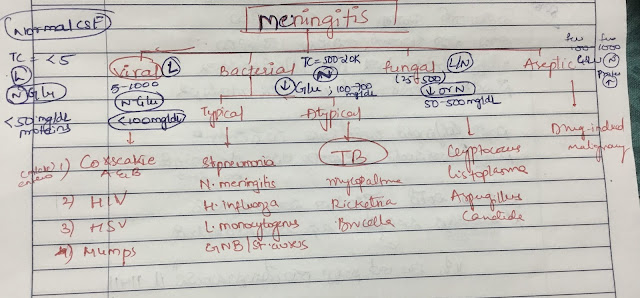 Normal CSF
Meningitis
TC = <5
L
N Glu
<50 mg/dl
proteins
Viral L
5-1000
N Glu
<100mg/dl
Bacterial
TC=500-20K
N
↓Glu ; 100-700
mg/dl
Fungal L/N
(25-500)
↓ or N
50-500mg/dl
Aseptic
few few
100 1000
Glu N
↑
Typical
Atypical
Drug-induced
malignancy
1) Coxsackie
A & B
2) HIV
3) HSV
4) Mumps
St.pneumonia
N. meningitis
H. Influenza
L. monocytogenus
GNB/St. aureus
TB
Mycoplasma
Ricketsia
Brucella
Cryptococcus
Histoplasma
Aspergillus
Candida